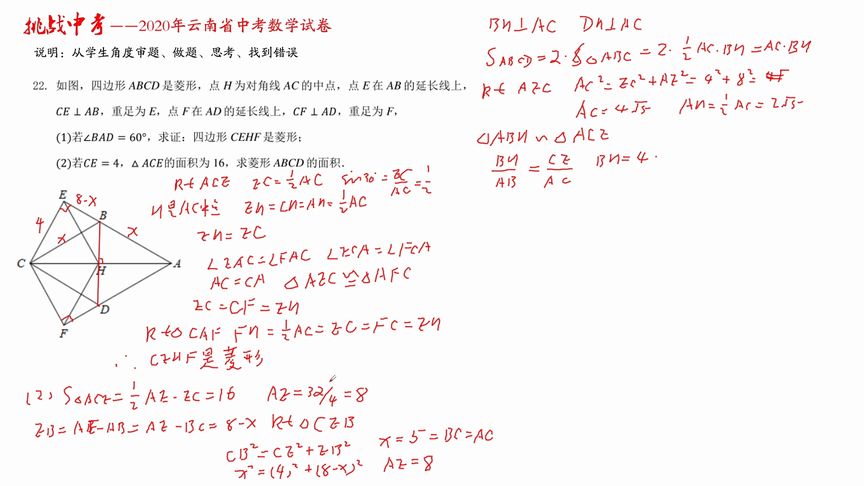 挑战中考——2020年云南省中考数学试卷
说明：从学生角度审题、做题、思考、找到错误
22. 如图，四边形 ABCD 是菱形，点 H 为对角线 AC 的中点，点 E 在 AB 的延长线上，
CE ⊥ AB，重足为 E，点 F 在 AD 的延长线上，CF ⊥ AD，重足为 F，
(1)若∠BAD = 60°，求证：四边形 CEHF 是菱形；
(2)若CE = 4，△ ACE的面积为 16，求菱形 ABCD 的面积．
Rt ACE EC=½AC sin30°=EC/AC=½
H是AC中点 EH=CH=AH=½AC
EH=EC
∠EAC=∠FAC ∠ECA=∠FCA
AC=CA △AEC≌△AFC
EC=CF=EH
Rt△CAF FH=½AC=EC=FC=EH
∴ CEHF是菱形
E 8-x
B
4 x x
C H A
D
F
(2) S△ACE=½AE·EC=16 AE=32/4=8
EB=AE-AB=AE-BC=8-x Rt△CEB
CB²=CE²+EB² x=5=BC=AC
x²=(4)²+(8-x)² AE=8
BH⊥AC DH⊥AC
SABCD=2·S△ABC=2·½AC·BH=AC·BH
Rt AEC AC²=EC²+AE²=4²+8²=
AC=4√5 AH=½AC=2√5
△ABH∽△ACE
BH/AB=CE/AC BH=4·